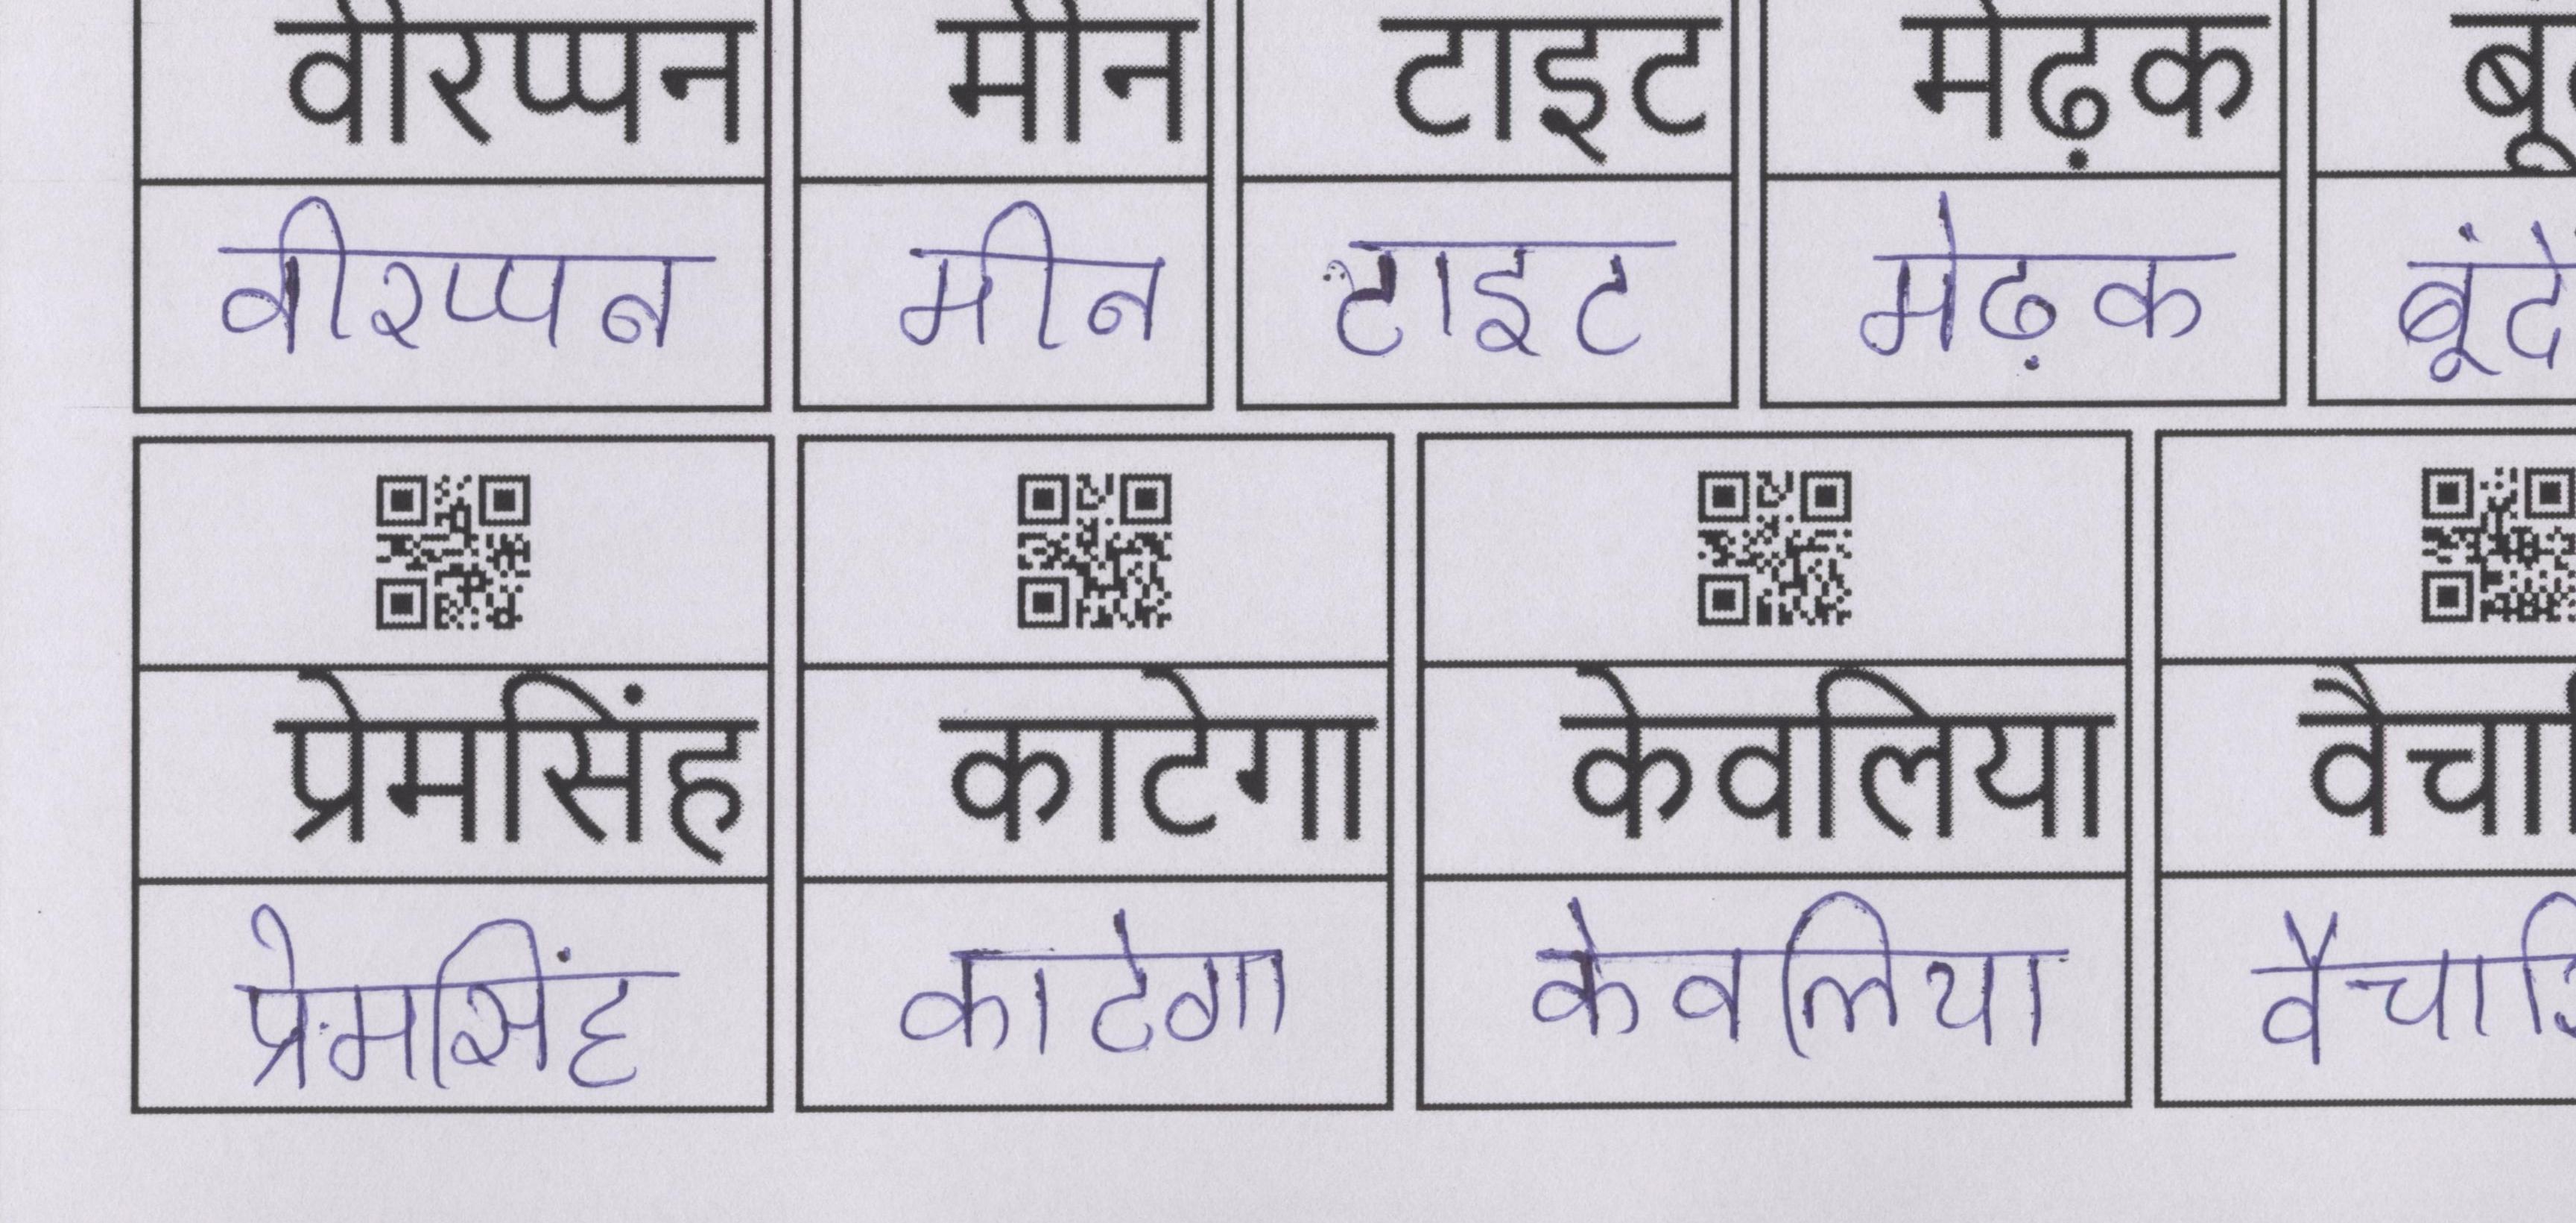 वीरप्पन मीन टाइट मेढ़क
वीरप्पन मीन टाइट मेढ़क बूंदे
प्रेमसिंह काटेगा केवलिया
प्रेमसिंह काटेगा केवलिया